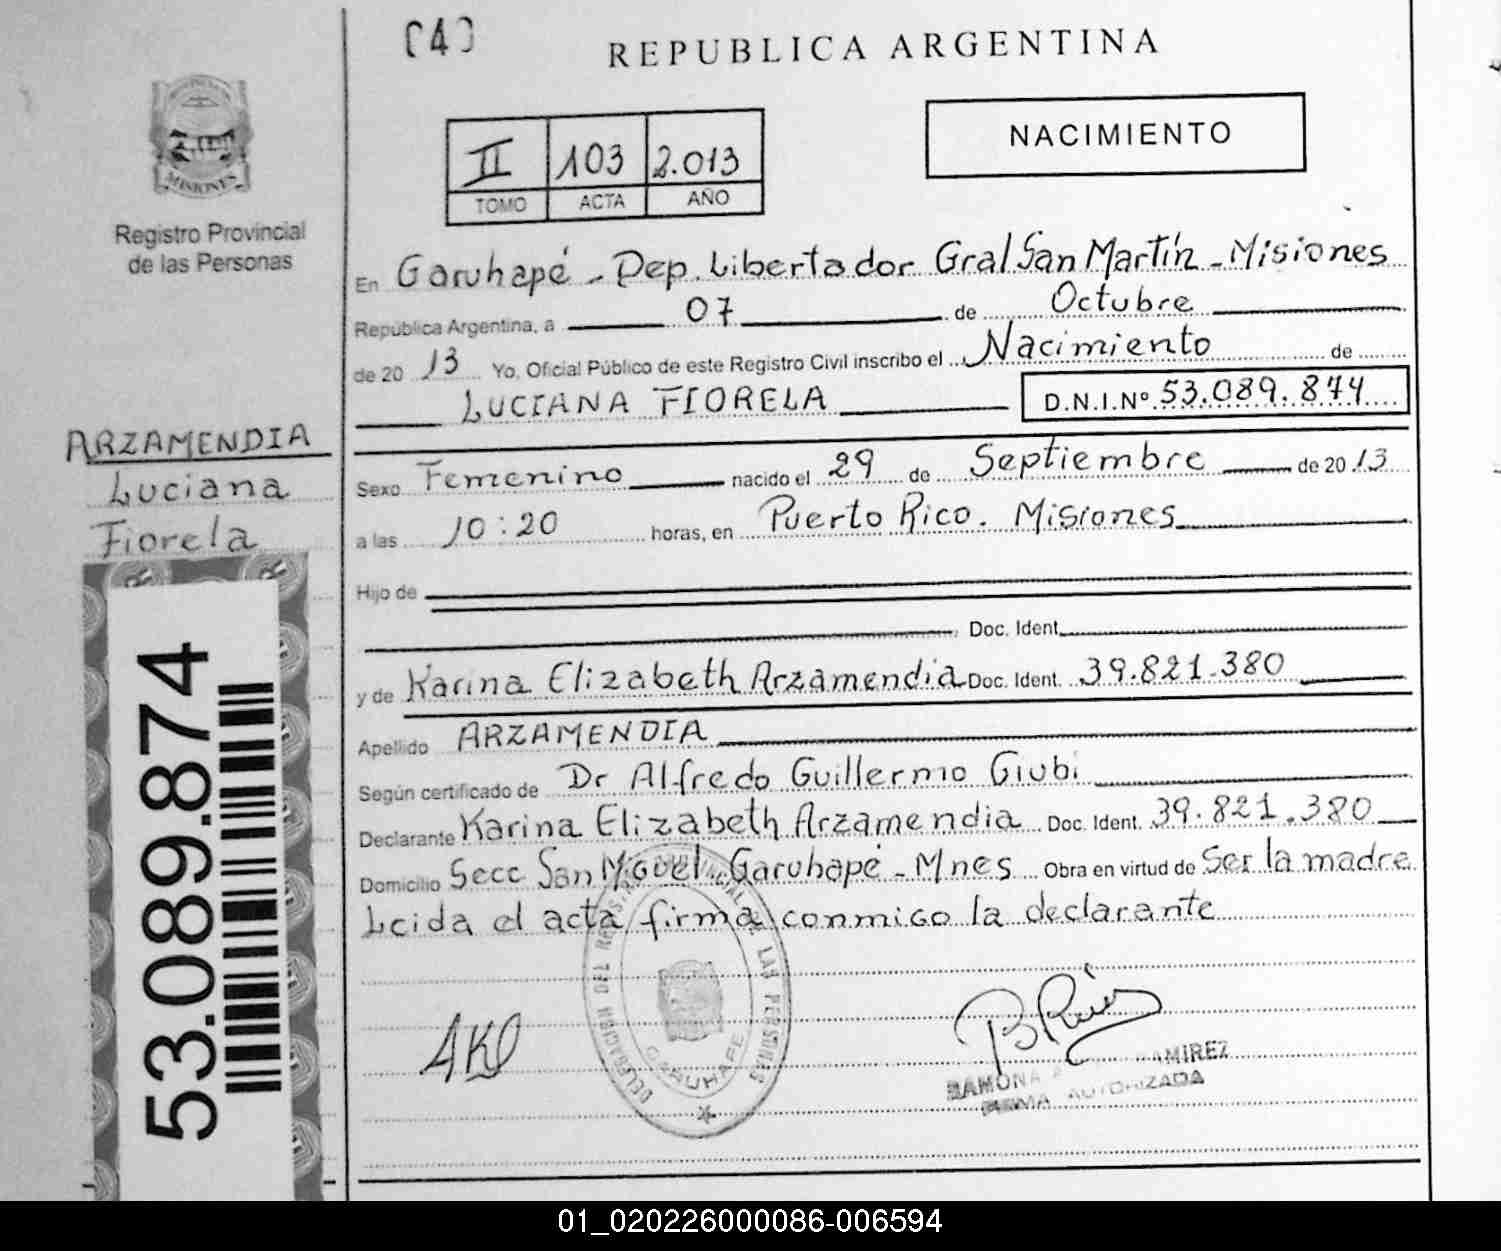 (4)
REPUBLICA ARGENTINA
NACIMIENTO
II 103 2.013
TOMO ACTA AÑO
MISIONES
Registro Provincial
de las Personas
En Garuhapé - Dep. Libertador Gral San Martín - Misiones
República Argentina, a 07 de Octubre
de 2013 Yo, Oficial Público de este Registro Civil inscribo el Nacimiento de
LUCIANA FIORELA D.N.I.Nº 53.089.874
ARZAMENDIA
Luciana
Fiorela
Sexo Femenino nacido el 29 de Septiembre de 2013
a las 10:20 horas, en Puerto Rico. Misiones
Hijo de
Doc. Ident.
y de Karina Elizabeth Arzamendia Doc. Ident. 39.821.380
Apellido ARZAMENDIA
Según certificado de Dr Alfredo Guillermo Giubi
Declarante Karina Elizabeth Arzamendia Doc. Ident. 39.821.380
Domicilio Secc San Miguel - Garuhapé - Mnes Obra en virtud de Ser la madre
Leida el acta firma conmigo la declarante
53.089.874
AKE
DELEGACION DEL REGISTRO PROVINCIAL DE LAS PERSONAS
GARUHAPE
RAMONA RAMIREZ
FIRMA AUTORIZADA
01_020226000086-006594